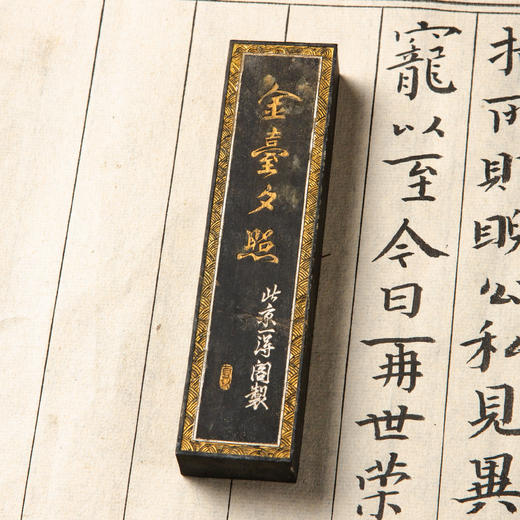 而
公私見異
寵以至今日再世榮
金臺夕照
北京一得閣製